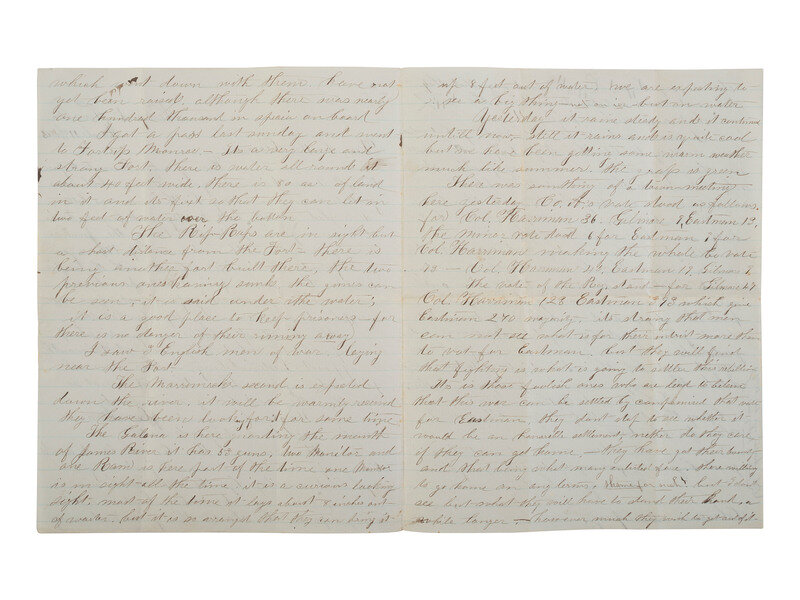 which went down with them have not
yet been raised, although there was nearly
one hundred thousand in specia on board
I got a pass last sunday and went
to Fortress Monroe - Its a very large and
strong Fort, there is water all round it
about 40 feet wide, there is 80 as of land
in it and its fixt so that they can let in
two feet of water over the bottom
The Rip-Raps are in sight but
a short distance from the Fort - there is
being another fort built there, the two
previous ones having sunk the guns can
be seen, it is said, under the water,
it is a good place to keep prisoners - for
there is no danger of their running away
I saw 2 English men of war laying
near the Fort
The Merrimack second is expected
down the river, it will be warmly received
they have been looking for it for some time
The Galena is here guarding the mouth
of James River it has 53 guns, two Monitor and
one Ram is here part of the time one Monitor
is in sight all the time, it is a curious looking
sight, most of the time it lays about 8 inches out
of water, but it is so arranged that they can bring it
up 8 feet out of water, we are expecting to
see a big thing - not on ice but on water
Yesterday it rained steady and it continued
until now, still it rains and is quite cool
but we have been getting some warm weather
much like summer the grass is green
Ther was somthing of a town meeting
here yesterday Co. the vote stood as follows
for Col. Harriman 36 Gilmore 8, Eastman 13,
the minor vote stood 6 for Eastman 1 for
Col. Harriman making the whole Co vote
- Col. Harriman Eastman 17, Gilmore
The vote of the Reg. stand - for Gilmore 47
Col. Harriman 128 Eastman which give
Eastman 240 majority, its strang that men
can not see what is for their intrist more than
to vot for Eastman, but they will find
that fighting is what is going to settle this rebellion
Its is those foolish ones who are lead to believe
that this war can be settled by compromise that vote
for Eastman, they dont stop to see whether it
would be an honorable settlement, neither do they care
if they can get home, - they have got their bounty
and that being what many enlisted for, those willing
to go home on any terms, but I dont
see but what they will have to stand their hand a
while longer - however much they wish to get out of it